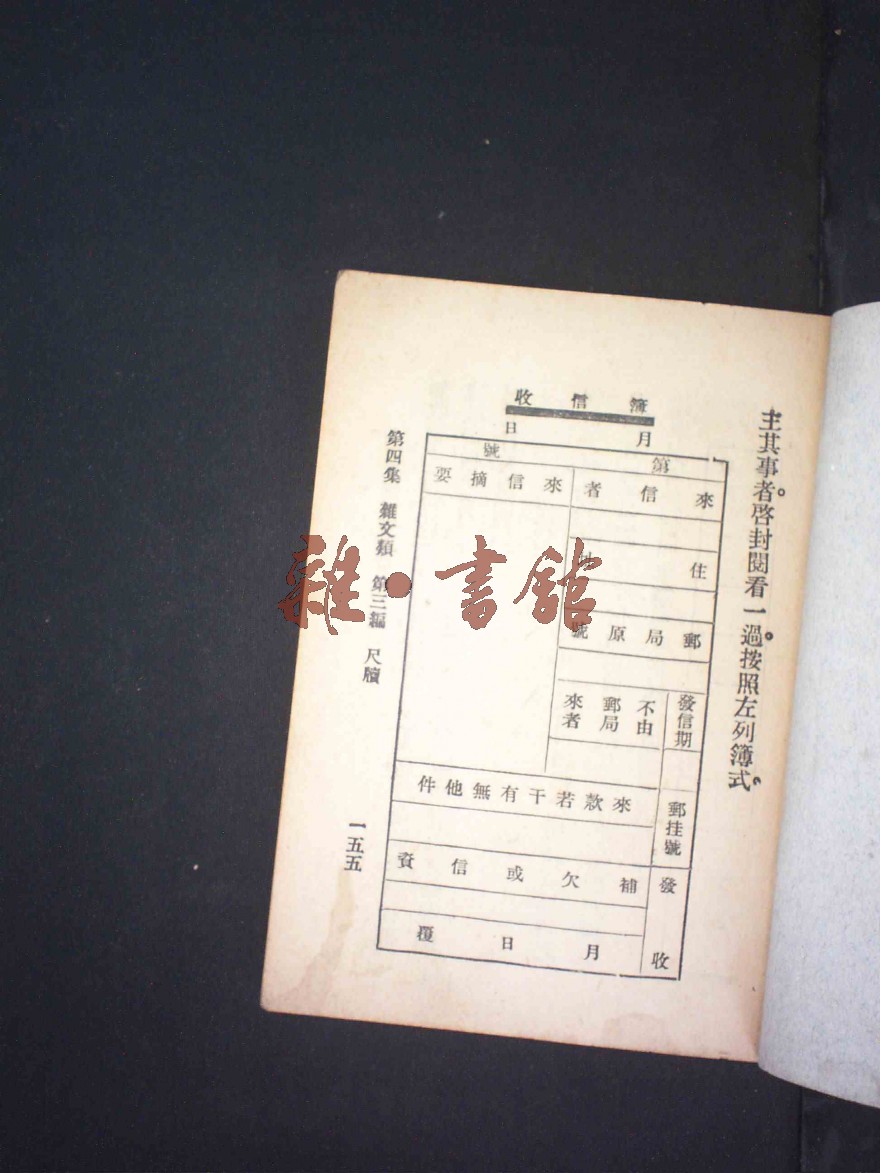 主其事者。啓封閱看一過。按照左列簿式。
簿信收
月 日
第 號
來信者
來信摘要
住
郵局原號
發信期
不由郵局來者
郵挂號
來款若干有無他件
發
補欠或信資
收
月 日 覆
第四集 雜文類 第三編 尺牘
一五五
雜·書館